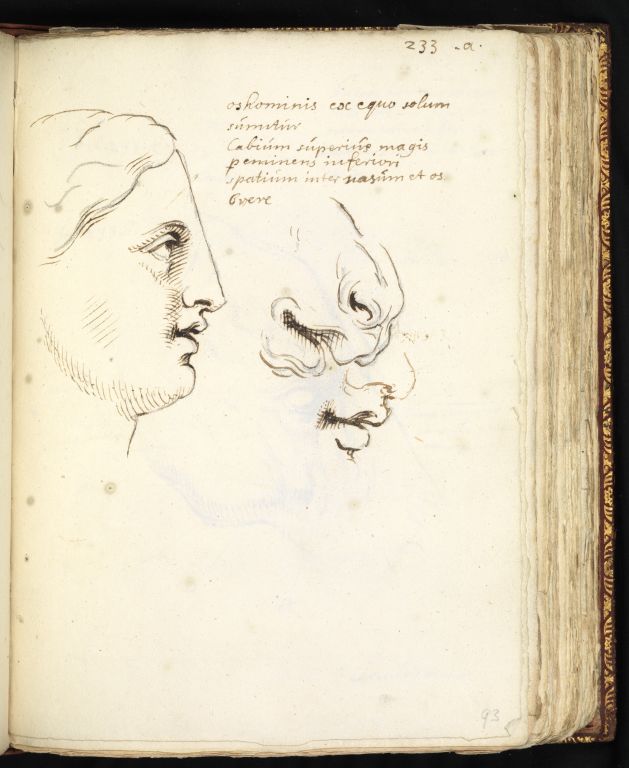 233 .a.
os hominis ex equo solum
sumitur
Labium superius magis
peminens inferiori
spatium inter nasum et os
breve
93